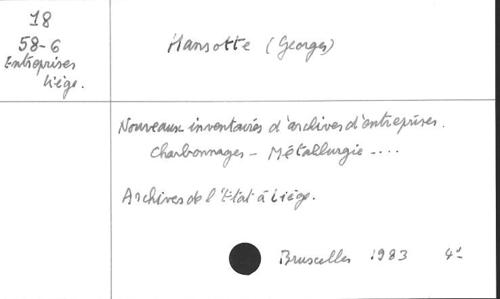 18
58-6
Entreprises
Liége.
Hansotte (Georges)
Nouveaux inventaires d'archives d'entreprises.
Charbonnages - Métallurgie - ....
Archives de l'Etat à Liége.
Bruxelles 1983 4°